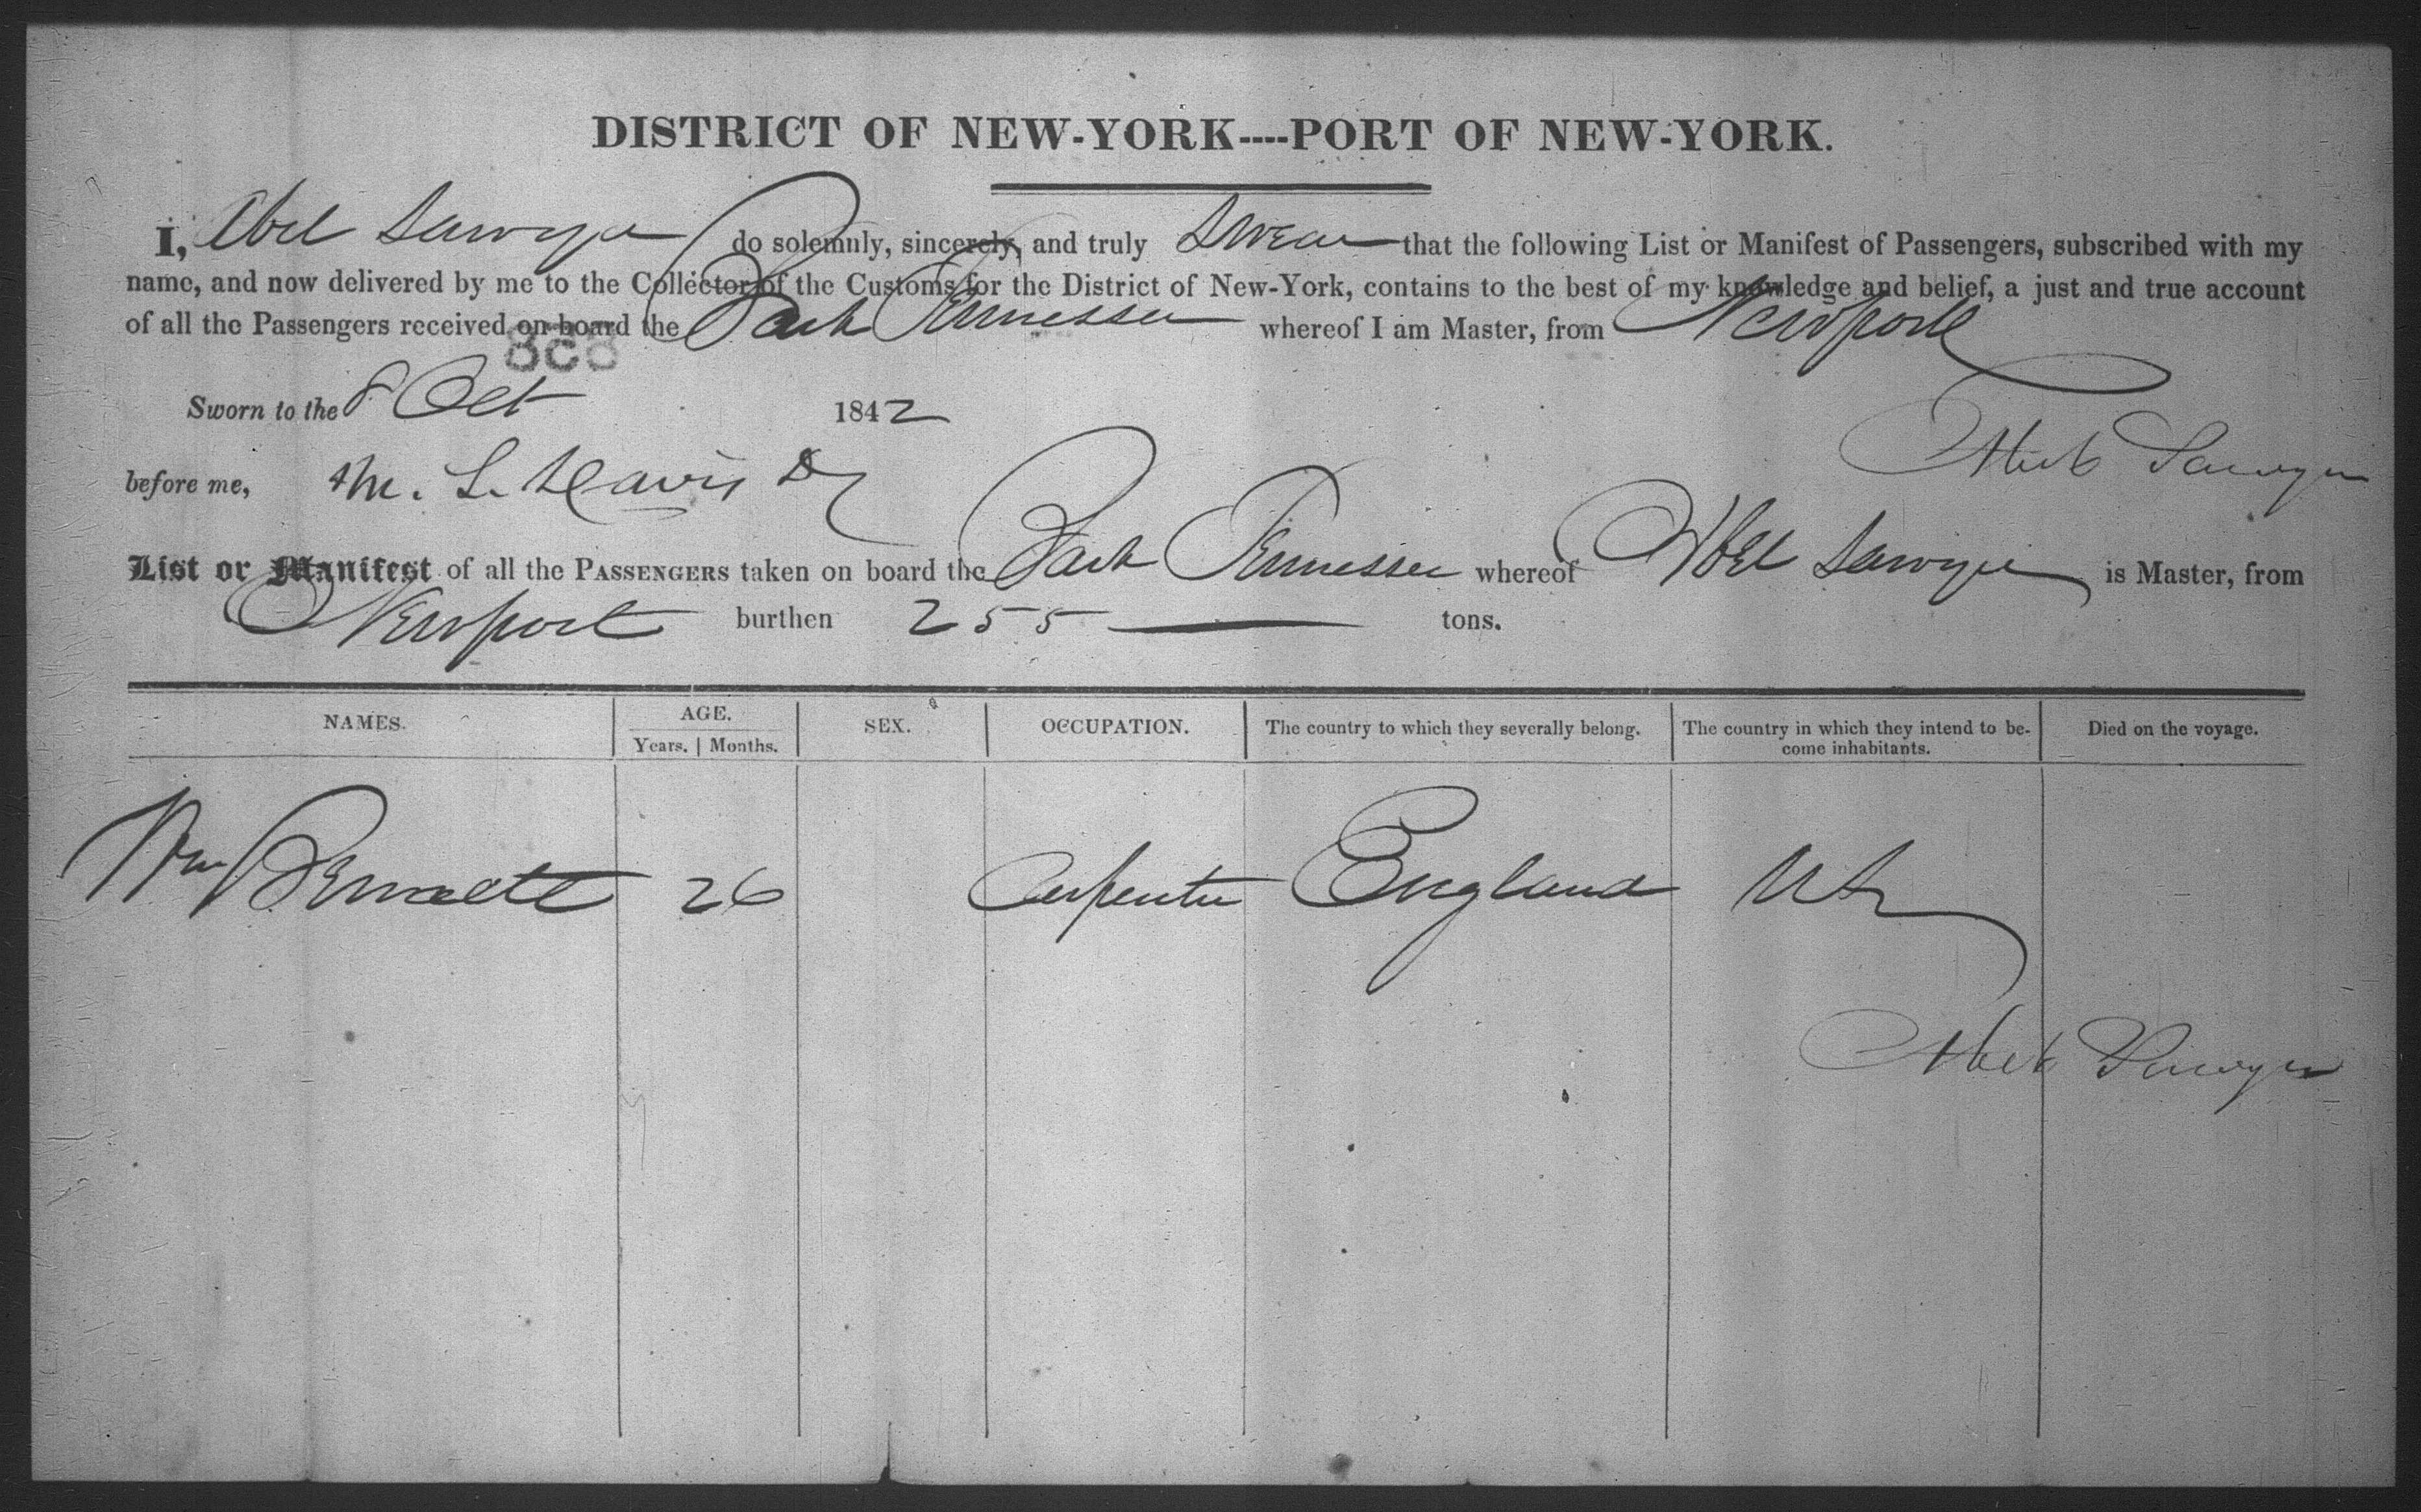 DISTRICT OF NEW-YORK----PORT OF NEW-YORK.
I, Abel Sawyer do solemnly, sincerely, and truly swear that the following List or Manifest of Passengers, subscribed with my
name, and now delivered by me to the Collector of the Customs for the District of New-York, contains to the best of my knowledge and belief, a just and true account
of all the Passengers received on board the Bark Tennessee whereof I am Master, from Newport
Sworn to the 8 Oct 1842
Abel Sawyer
before me, M. L. Davis
List or Manifest of all the PASSENGERS taken on board the Bark Tennessee whereof Abel Sawyer is Master, from
Newport burthen 255 tons.
NAMES. AGE. SEX. OCCUPATION. The country to which they severally belong. The country in which they intend to be- Died on the voyage.
Years. Months. come inhabitants.
Wm Bennett 26 Carpenter England US
Abel Sawyer